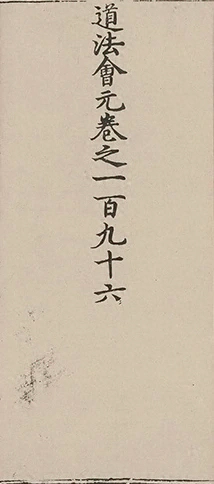 道法會元卷之一百九十六